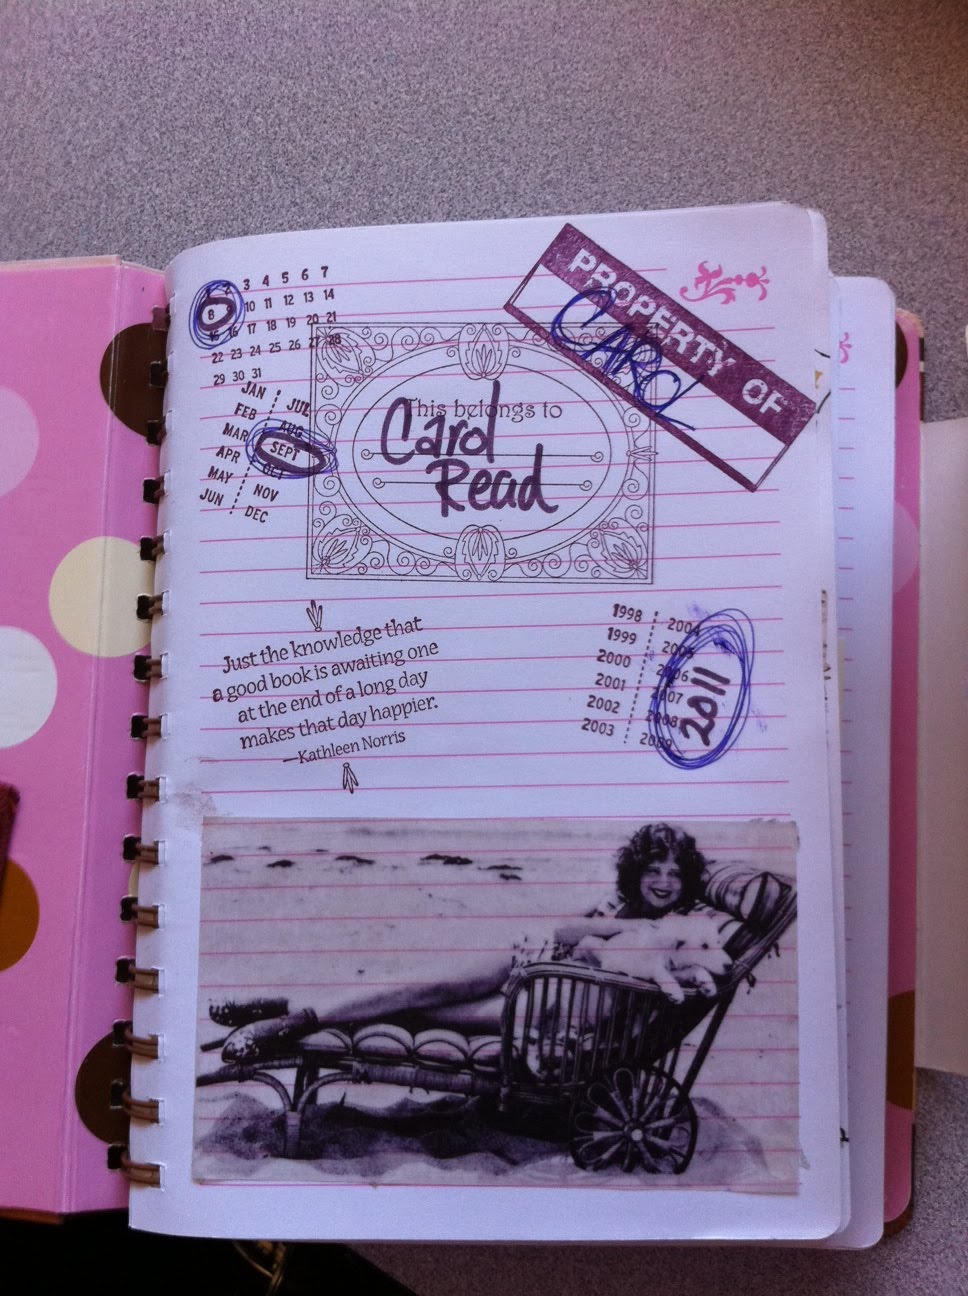 PROPERTY OF
CAROL
2 3 4 5 6 7
8 10 11 12 13 14
15 16 17 18 19 20 21
22 23 24 25 26 27 28
29 30 31
JAN JUL
FEB AUG
MAR SEPT
APR OCT
MAY NOV
JUN DEC
This belongs to
Carol
Read
Just the knowledge that
a good book is awaiting one
at the end of a long day
makes that day happier.
—Kathleen Norris
1998 2004
1999 2005
2000 2006
2001 2007
2002 2008
2003 2009
2011